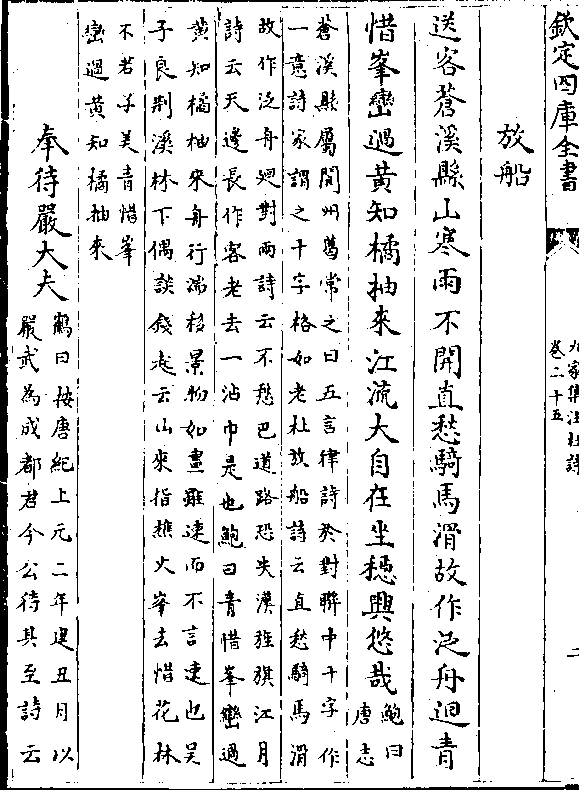 欽定四庫全書
九家集注杜詩
卷二十五
二
放船
送客蒼溪縣山寒雨不開直愁騎馬滑故作泛舟迴青
惜峯巒過黄知橘柚來江流大自在坐穩興悠哉
鮑曰
唐志
蒼溪縣屬閬州舊常之曰五言律詩於對聯中十字作
一意詩家謂之十字格如老杜放船詩云直愁騎馬滑
故作泛舟廻對兩詩云不愁巴道路恐失漢旌旗江月
詩云天邊長作客老去一沾巾是也鮑曰青惜峯巒過
黄知橘柚來舟行湍移景物如畫雖速而不言速也吴
子良荆溪林下偶談錢起云山來指樵火峯去惜花林
不若子美青惜峯
巒過黄知橘柚來
奉待嚴大夫
鶴曰按唐紀上元二年建丑月以
嚴武為成都君今公待其至詩云